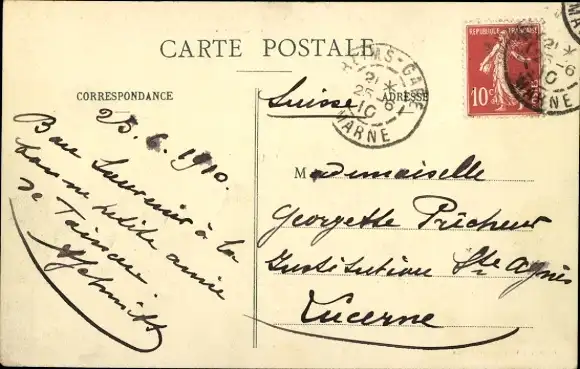 CARTE POSTALE
CORRESPONDANCE
ADRESSE
RÉPUBLIQUE FRANÇAISE
10c
REIMS-GARE
21 *
25-6
10
MARNE
21 *
25-6
10
MARNE
Suisse
25.6.1910.
Bon Souvenir à la
bonne petite amie
de
Schmitt
Mademoiselle
Georgette Prêcheur
Institution Ste Agnès
Lucerne